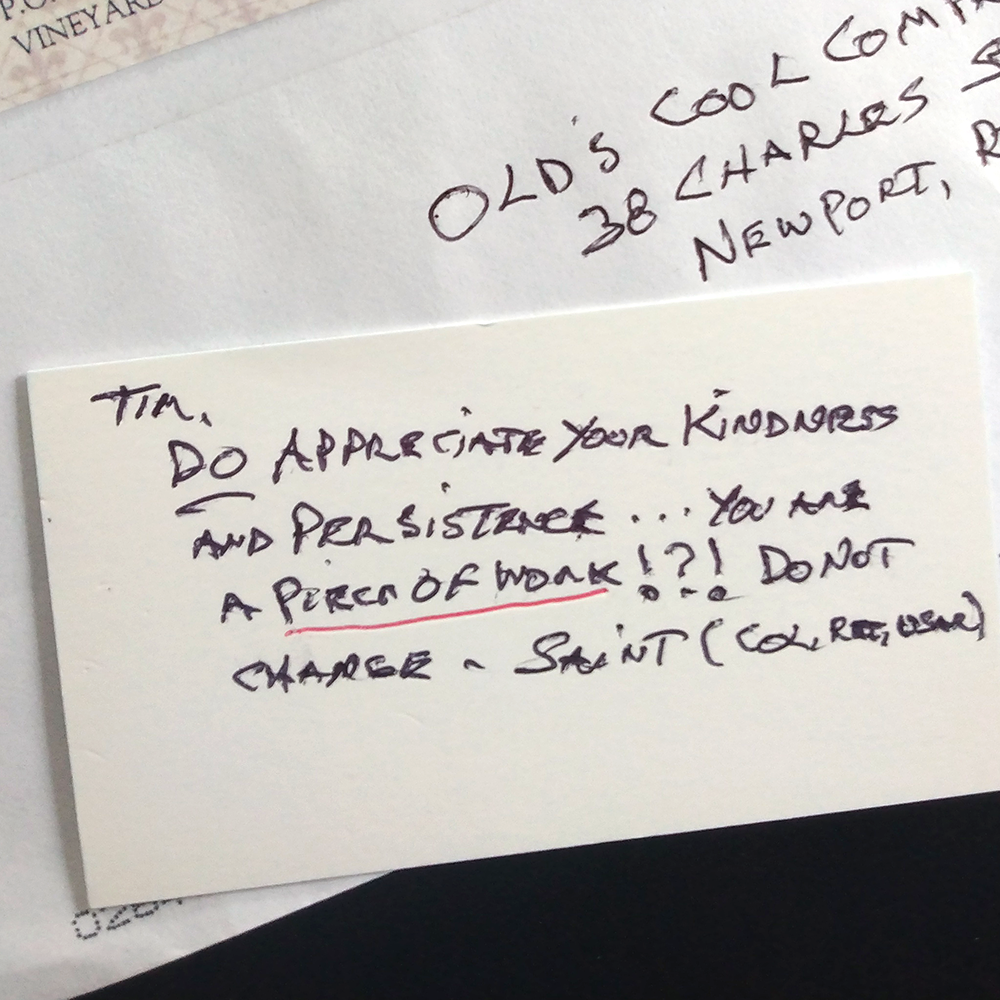 P.O.
VINEYARD
OLD'S COOL COMPA
38 CHARLES S
NEWPORT, R
TIM,
DO APPRECIATE YOUR KINDNESS
AND PERSISTENCE ... YOU ARE
A PIECE OF WORK !?! DO NOT
CHANGE ~ SAINT (COL, RET, USAR)
028